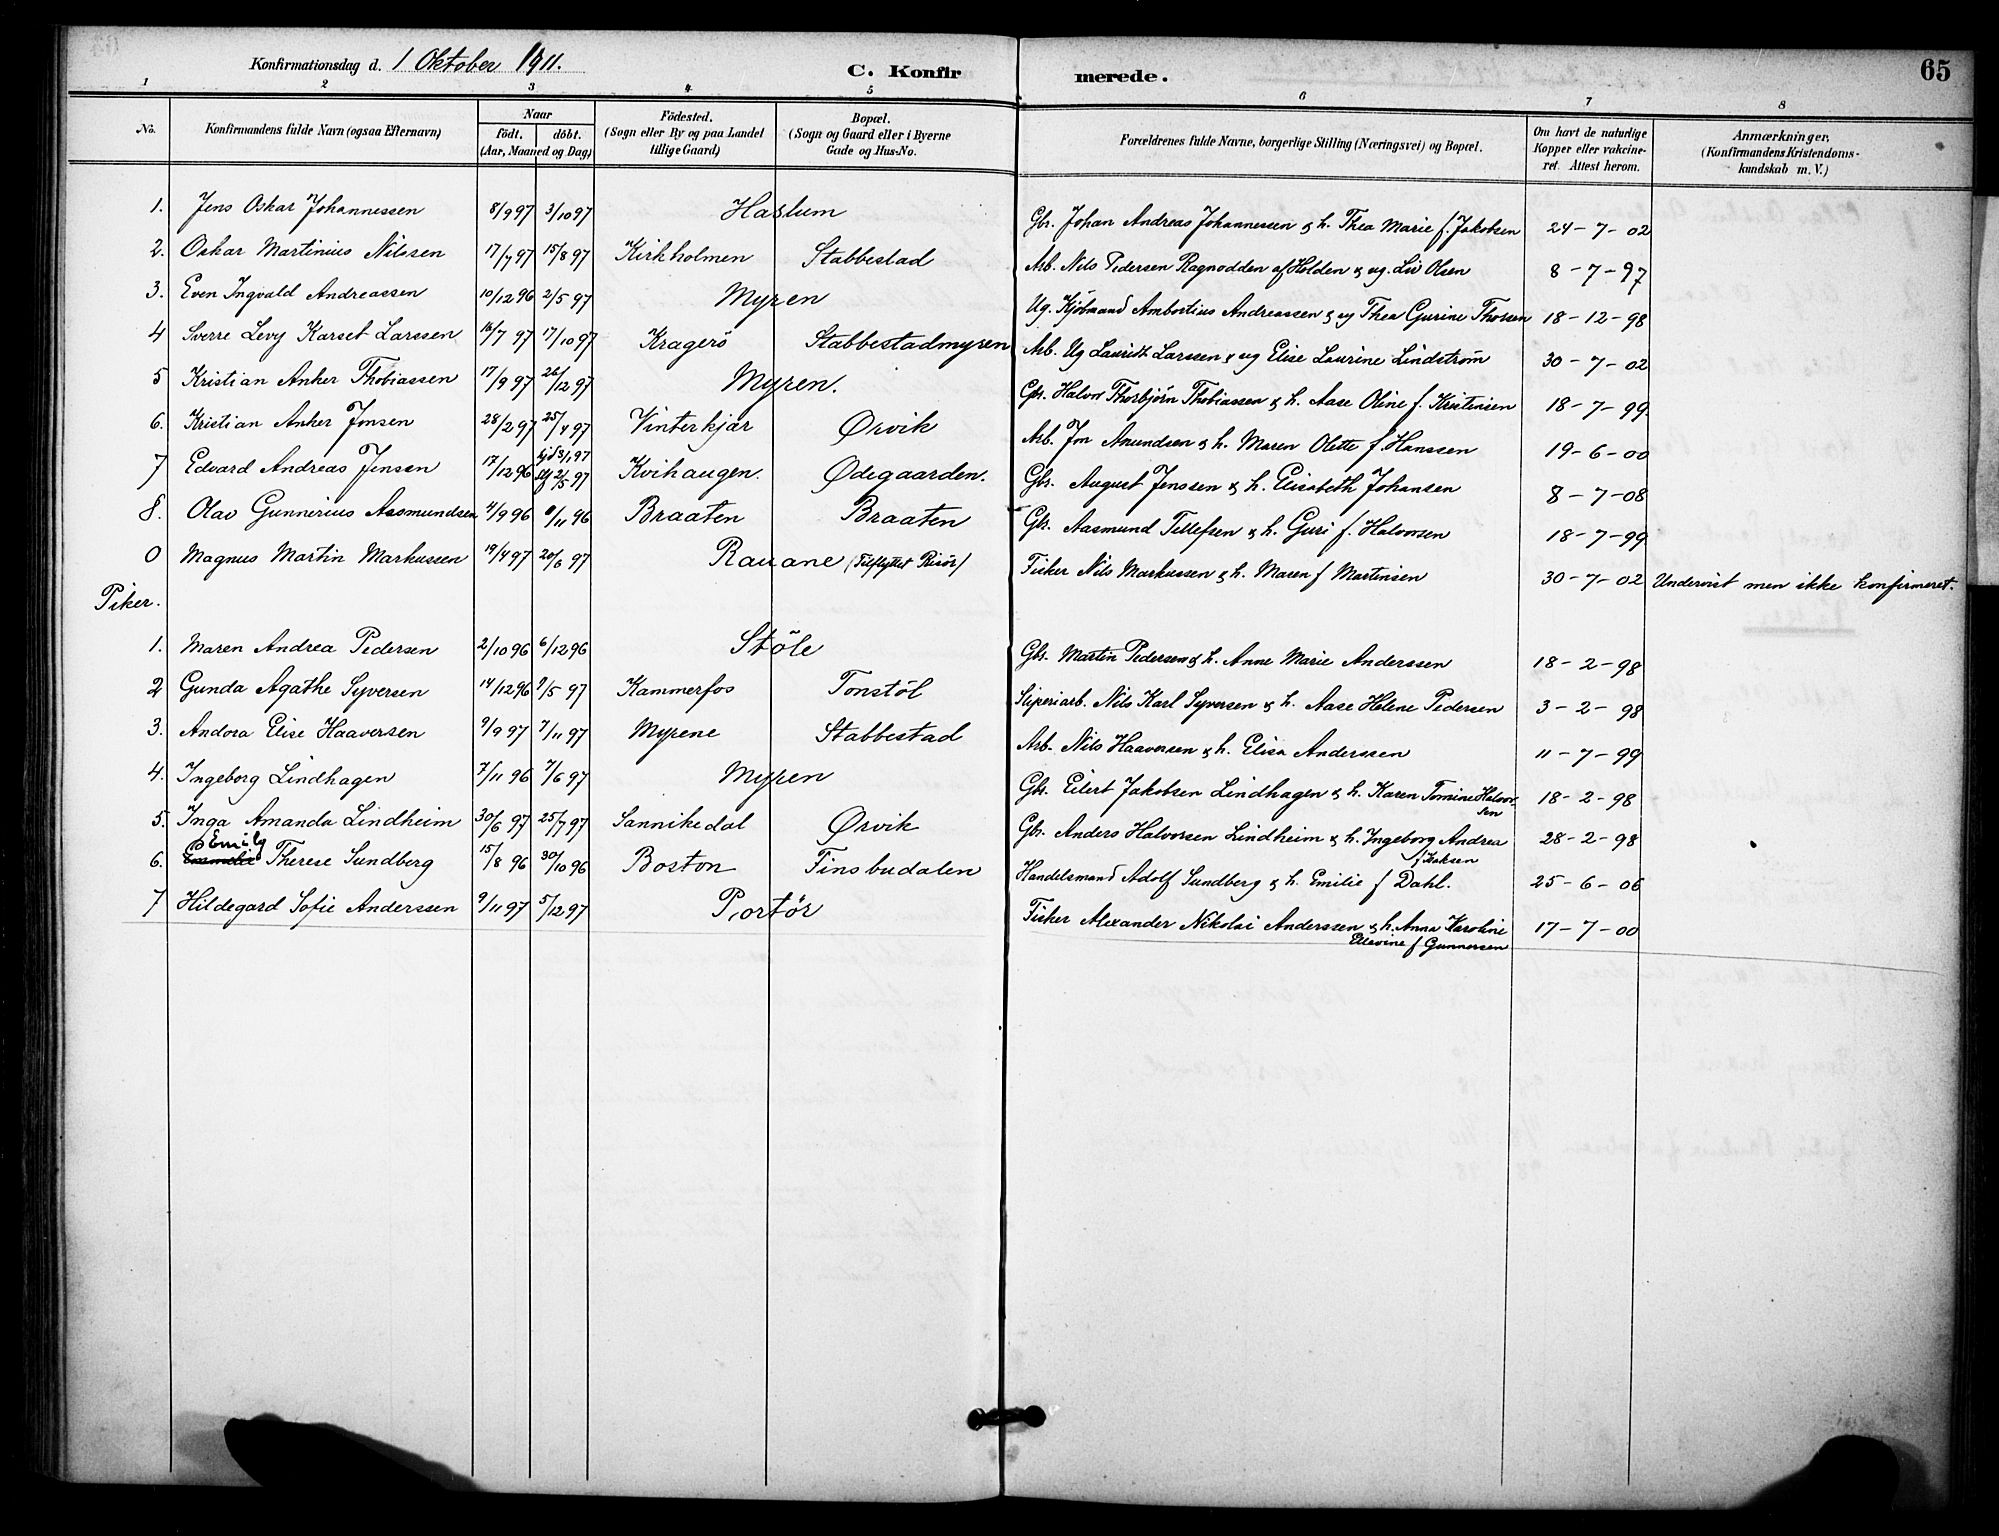 65
Konfirmationsdag d. 1 Oktober 1911. C. Konfirmerede.
1 2 3 4 5 6 7 8
No. Konfirmandens fulde Navn (ogsaa Efternavn) Naar födt. döbt. (Aar, Maaned og Dag) Födested. (Sogn eller By og paa Landet tillige Gaard) Bopæl. (Sogn og Gaard eller i Byerne Gade og Hus-No. Forældrenes fulde Navne, borgerlige Stilling (Næringsvei) og Bopæl. Om havt de naturlige Kopper eller vakcineret. Attest herom. Anmærkninger, (Konfirmandens Kristendomskundskab m. V.)
1. Jens Oskar Johannessen 8/9 97 3/10 97 Haslum Gbr. Johan Andreas Johannessen & h. Thea Marie f. Jakobsen 24-7-02
2. Oskar Martinius Nilssen 17/7 97 15/8 97 Kirkholmen Stabbestad Arb. Nils Pedersen Ragnodden af Holden & ug. Liv Olsen 8-7-97
3. Even Ingvald Andreassen 10/12 96 2/5 97 Myren Ug. Kjöbmand Ambortius Andreassen & ug Thea Gurine Thorsen 18-12-98
4 Sverre Levy Karset Larssen 16/7 97 17/10 97 Kragerö Stabbestadmyren Arb. Ug Lauritz Larssen & ug Elise Laurine Lindström 30-7-02
5 Kristian Anker Thobiassen 17/9 97 26/12 97 Myren. Gbr. Halvor Thorbjörn Thobiassen & h. Aase Oline f. Kristensen 18-7-99
6. Kristian Anker Jonsen 28/2 97 25/4 97 Vinterkjær Ørvik Arb. Jon Amundsen & h. Maren Olette f. Hanssen 19-6-00
7 Edvard Andreas Jensen 17/12 96 hjd 3/1 97 stf 2/5 97 Kvihaugen. Ødegaarden. Gbr. August Jenssen & h. Elisabeth Johansen 8-7-08
8. Olav Gunnerius Aasmundsen 4/9 96 8/11 96 Braaten Braaten Gbr. Aasmund Tellefsen & h. Guri f. Halvorsen 18-7-99
0 Magnus Martin Markussen 19/4 97 20/6 97 Rauane (Tilflyttet Risör) Fisker Nils Markussen & h. Maren f Martinsen 30-7-02 Undervist men ikke konfirmeret.
Piker.
1. Maren Andrea Pedersen 2/10 96 6/12 96 Støle Gbr. Martin Pedersen & h. Anne Marie Anderssen 18-2-98
2 Gunda Agathe Syversen 14/12 96 9/5 97 Kammerfos Tonstöl Sliperiarb. Nils Karl Syversen & h. Aase Helene Pedersen 3-2-98
3. Andora Elise Haaversen 9/9 97 7/11 97 Myrene Stabbestad Arb. Nils Haaversen & h. Elisa Anderssen 11-7-99
4. Ingeborg Lindhagen 7/11 96 7/6 97 Myren Gbr. Eilert Jakobsen Lindhagen & h. Karen Tomine Halvorsen 18-2-98
5. Inga Amanda Lindheim 30/6 97 25/7 97 Sannikedal Ørvik Gbr. Anders Halvorsen Lindheim & h. Ingeborg Andrea f Isaksen 28-2-98
Emily
6. Therese Sundberg 15/8 96 30/10 96 Boston Finsbudalen Handelsmand Adolf Sundberg & h. Emilie f Dahl. 25-6-06
7 Hildegard Sofie Anderssen 9/11 97 5/12 97 Portör Fisker Alexander Nikolai Anderssen & h. Anna Karoline
Ellevine f Gunnersen 17-7-00